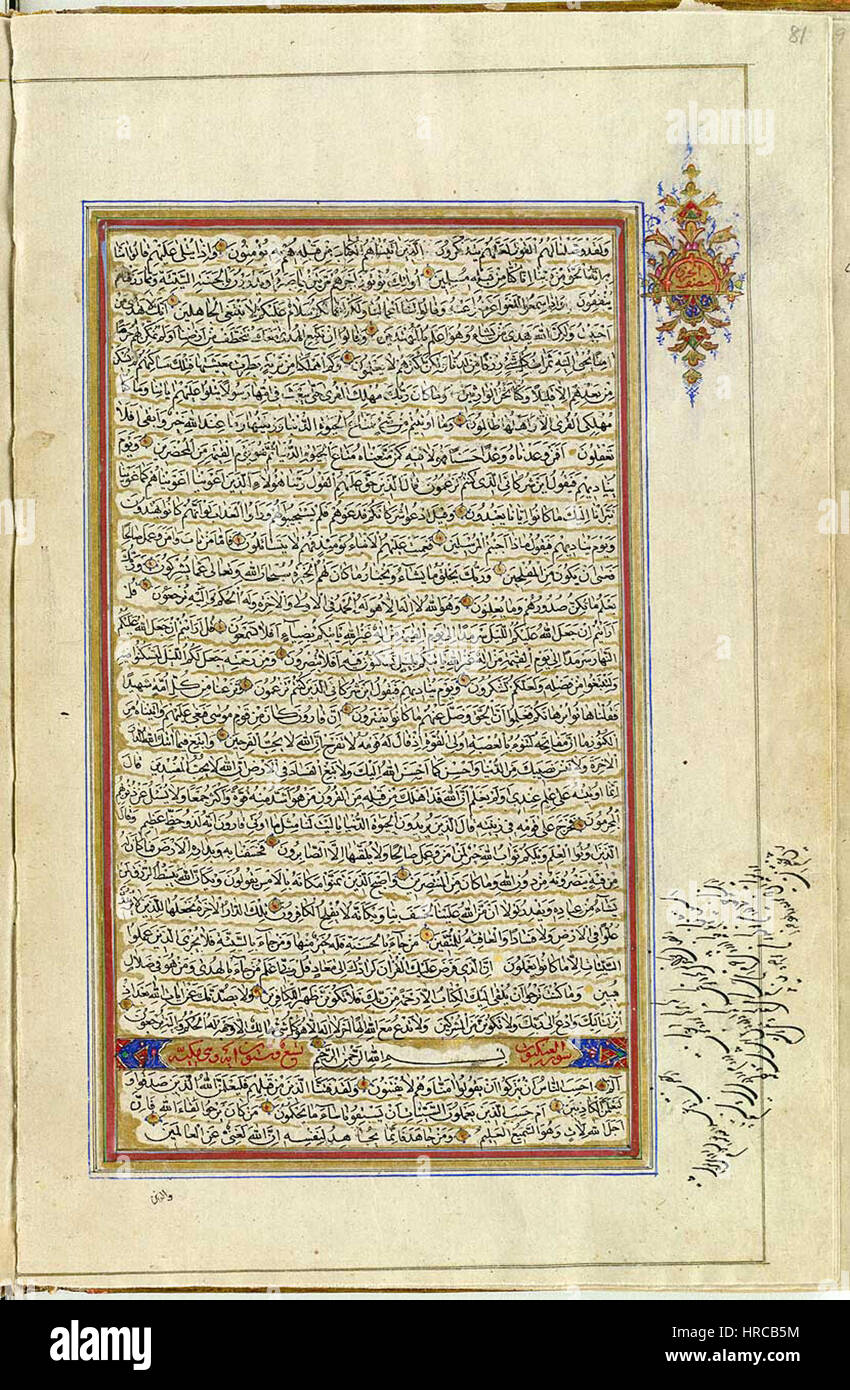 81
نصف الحزب
ولقد وصلنا لهم القول لعلهم يتذكرون الذين آتيناهم الكتاب من قبله هم به يؤمنون وإذا يتلى عليهم قالوا آمنا
به إنه الحق من ربنا إنا كنا من قبله مسلمين أولئك يؤتون أجرهم مرتين بما صبروا ويدرؤن بالحسنة السيئة ومما رزقناهم
ينفقون وإذا سمعوا اللغو أعرضوا عنه وقالوا لنا أعمالنا ولكم أعمالكم سلام عليكم لا نبتغي الجاهلين إنك لا تهدي من
أحببت ولكن الله يهدي من يشاء وهو أعلم بالمهتدين وقالوا إن نتبع الهدى معك نتخطف من أرضنا أولم نمكن لهم حرما
آمنا يجبى إليه ثمرات كل شيء رزقا من لدنا ولكن أكثرهم لا يعلمون وكم أهلكنا من قرية بطرت معيشتها فتلك مساكنهم لم تسكن
من بعدهم إلا قليلا وكنا نحن الوارثين وما كان ربك مهلك القرى حتى يبعث في أمها رسولا يتلوا عليهم آياتنا وما كنا
مهلكي القرى إلا وأهلها ظالمون وما أوتيتم من شيء فمتاع الحيوة الدنيا وزينتها وما عند الله خير وأبقى أفلا
تعقلون أفمن وعدناه وعدا حسنا فهو لاقيه كمن متعناه متاع الحيوة الدنيا ثم هو يوم القيمة من المحضرين ويوم
يناديهم فيقول أين شركائي الذين كنتم تزعمون قال الذين حق عليهم القول ربنا هؤلاء الذين أغوينا أغويناهم كما غوينا
تبرأنا إليك ما كانوا إيانا يعبدون وقيل ادعوا شركاءكم فدعوهم فلم يستجيبوا لهم ورأوا العذاب لو أنهم كانوا يهتدون
ويوم يناديهم فيقول ماذا أجبتم المرسلين فعميت عليهم الأنباء يومئذ فهم لا يتساءلون فأما من تاب وآمن وعمل صالحا
فعسى أن يكون من المفلحين وربك يخلق ما يشاء ويختار ما كان لهم الخيرة سبحان الله وتعالى عما يشركون وربك
يعلم ما تكن صدورهم وما يعلنون وهو الله لا إله إلا هو له الحمد في الأولى والآخرة وله الحكم وإليه ترجعون قل
أرأيتم إن جعل الله عليكم الليل سرمدا إلى يوم القيمة من إله غير الله يأتيكم بضياء أفلا تسمعون قل أرأيتم إن جعل الله عليكم
النهار سرمدا إلى يوم القيمة من إله غير الله يأتيكم بليل تسكنون فيه أفلا تبصرون ومن رحمته جعل لكم الليل لتسكنوا فيه
ولتبتغوا من فضله ولعلكم تشكرون ويوم يناديهم فيقول أين شركائي الذين كنتم تزعمون ونزعنا من كل أمة شهيدا
فقلنا هاتوا برهانكم فعلموا أن الحق لله وضل عنهم ما كانوا يفترون إن قارون كان من قوم موسى فبغى عليهم وآتيناه من
الكنوز ما إن مفاتحه لتنوء بالعصبة أولي القوة إذ قال له قومه لا تفرح إن الله لا يحب الفرحين وابتغ فيما آتيك الله الدار
الآخرة ولا تنس نصيبك من الدنيا وأحسن كما أحسن الله إليك ولا تبغ الفساد في الأرض إن الله لا يحب المفسدين قال
إنما أوتيته على علم عندي أولم يعلم أن الله قد أهلك من قبله من القرون من هو أشد منه قوة وأكثر جمعا ولا يسئل عن ذنوبهم
المجرمون فخرج على قومه في زينته قال الذين يريدون الحيوة الدنيا يا ليت لنا مثل ما أوتي قارون إنه لذو حظ عظيم وقال
الذين أوتوا العلم ويلكم ثواب الله خير لمن آمن وعمل صالحا ولا يلقيها إلا الصابرون فخسفنا به وبداره الأرض فما كان له
من فئة ينصرونه من دون الله وما كان من المنتصرين وأصبح الذين تمنوا مكانه بالأمس يقولون ويكأن الله يبسط الرزق لمن
يشاء من عباده ويقدر لولا أن من الله علينا لخسف بنا ويكأنه لا يفلح الكافرون تلك الدار الآخرة نجعلها للذين لا يريدون
علوا في الأرض ولا فسادا والعاقبة للمتقين من جاء بالحسنة فله خير منها ومن جاء بالسيئة فلا يجزى الذين عملوا
السيئات إلا ما كانوا يعملون إن الذي فرض عليك القرآن لرادك إلى معاد قل ربي أعلم من جاء بالهدى ومن هو في ضلال
مبين وما كنت ترجو أن يلقى إليك الكتاب إلا رحمة من ربك فلا تكونن ظهيرا للكافرين ولا يصدنك عن آيات الله بعد إذ
أنزلت إليك وادع إلى ربك ولا تكونن من المشركين ولا تدع مع الله إلها آخر لا إله إلا هو كل شيء هالك إلا وجهه له الحكم وإليه ترجعون
سورة العنكبوت بسم الله الرحمن الرحيم تسع وستون آية وهي مكية
الم أحسب الناس أن يتركوا أن يقولوا آمنا وهم لا يفتنون ولقد فتنا الذين من قبلهم فليعلمن الله الذين صدقوا و
ليعلمن الكاذبين أم حسب الذين يعملون السيئات أن يسبقونا ساء ما يحكمون من كان يرجوا لقاء الله فإن
أجل الله لآت وهو السميع العليم ومن جاهد فإنما يجاهد لنفسه إن الله لغني عن العالمين
والذين
alamy
Image ID: HRCB5M
www.alamy.com